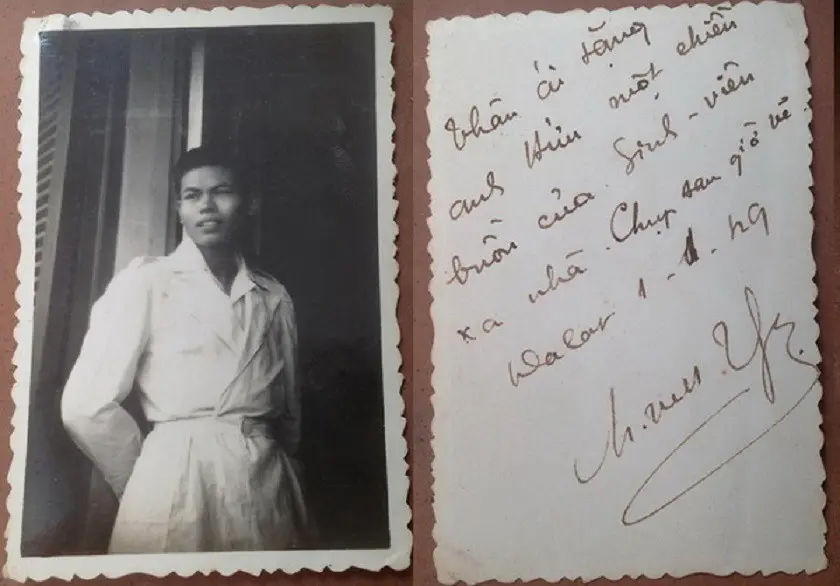 Thân ái tặng
anh Hữu một chiều
buồn của Sinh-viên
xa nhà. Chụp sau giờ về
Dalat 1-1-49